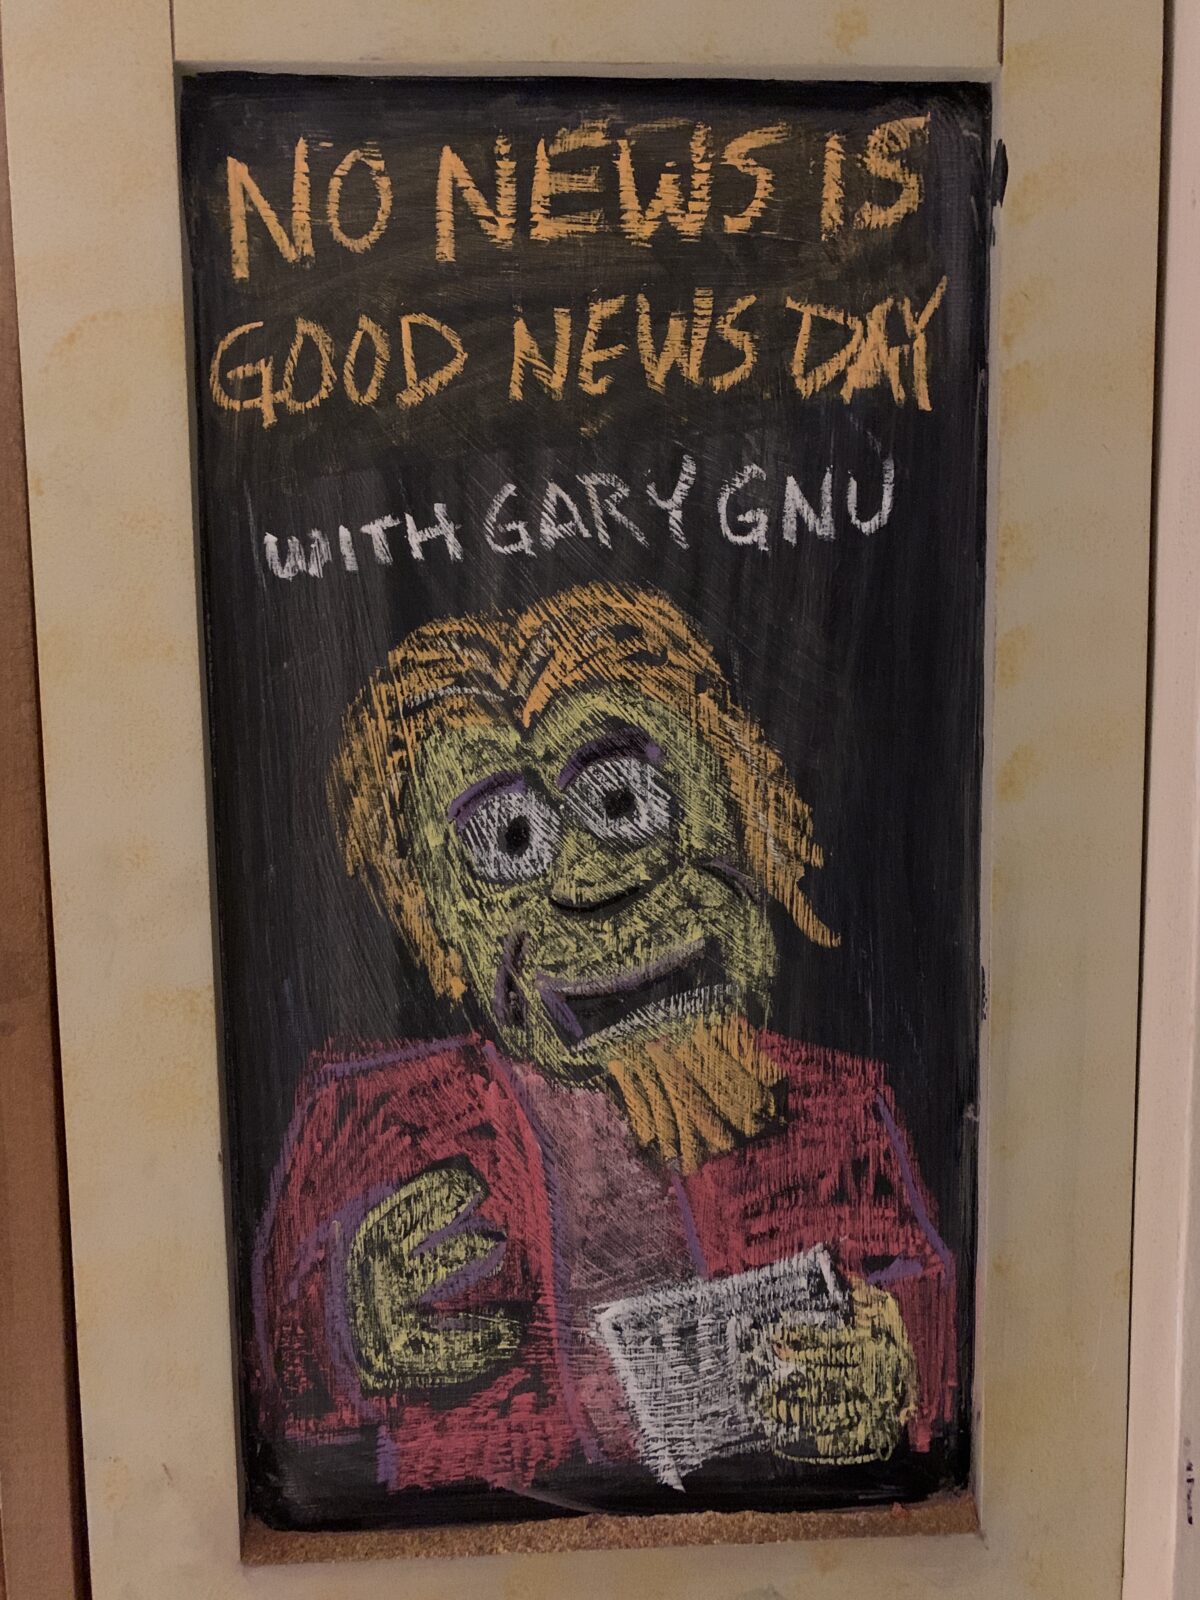 NO NEWS IS
GOOD NEWS DAY
WITH GARY GNU